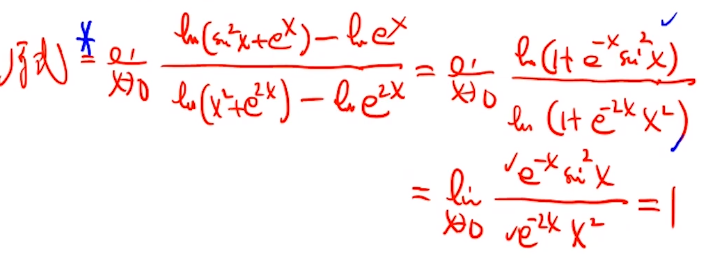 原式 * = lim x→0 ln(sin²x+eˣ)−ln eˣ / ln(x²+e²ˣ)−ln e²ˣ = lim x→0 ln(1+e⁻ˣsin²x) / ln(1+e⁻²ˣx²)
= lim x→0 e⁻ˣsin²x / e⁻²ˣx² = 1